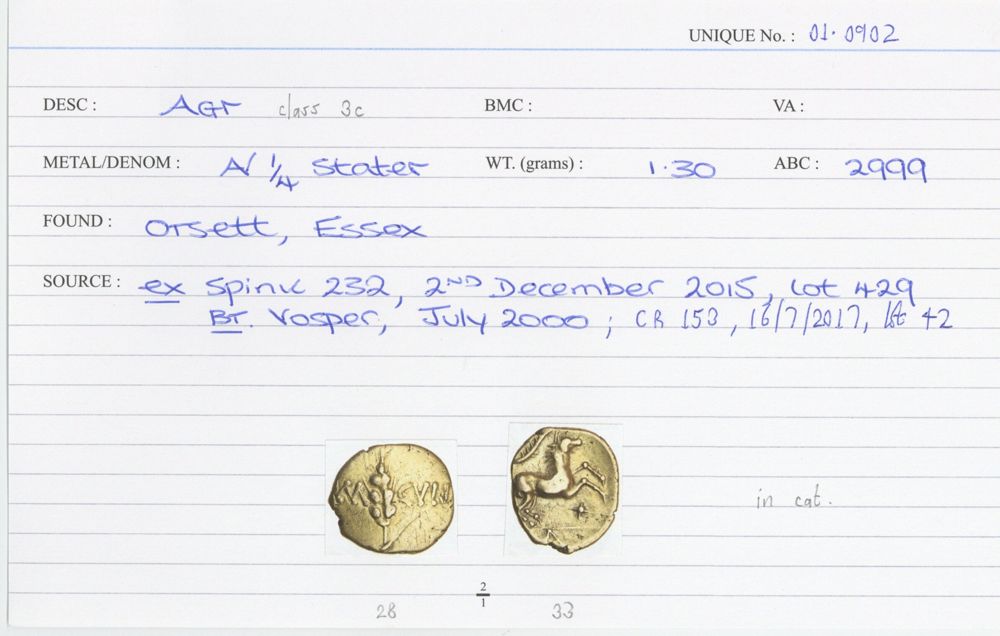 UNIQUE No. : 01·0902
DESC : Agr class 3c BMC : VA :
METAL/DENOM : A/ 1/4 Stater WT. (grams) : 1·30 ABC : 2999
FOUND : Orsett, Essex
SOURCE : ex Spink 232, 2ND December 2015, Lot 429
BT. Vosper, July 2000 ; CR 153, 16/7/2017, lot 42
CVN
in cat.
2
1
28 33